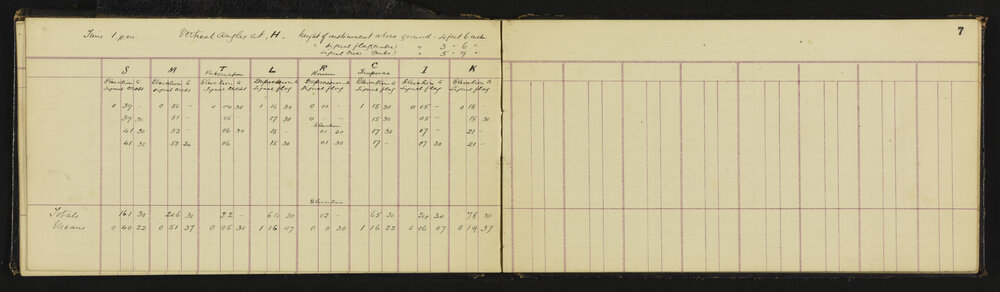 Time 1 p.m. Vertical angles at H. height of instrument above ground - 4 feet 6 inch
" signal flag (centre) " 3 " 6 "
signal cross (centre) " 5 " 9 "
7
S M T L R C I K
Elevation to Elevation to Elevation to Depression to Depression to Elevation to Elevation to Elevation to
Signal cross signal cross Signal cross Signal flag Signal flag Signal flag Signal flag Signal flag
0 39 - 0 50 - 0 04 30 1 16 30 0 01 - 1 15 30 0 05 - 0 18 -
39 30 51 - 05 - 17 30 " 15 30 05 - 18 30
Elevation
41 30 53 - 06 30 15 - 01 30 17 30 07 - 21 -
41 30 52 30 06 - 15 30 01 30 17 - 07 30 21 -
Elevation
Totals 161 30 206 30 22 - 64 30 02 - 65 30 24 30 78 30
Means 0 40 22 0 51 37 0 05 30 1 16 07 0 0 30 1 16 22 0 06 07 0 19 37